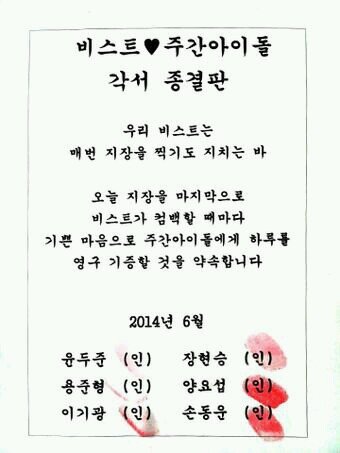 비스트♥주간아이돌
각서 종결판
우리 비스트는
매번 지장을 찍기도 지치는 바
오늘 지장을 마지막으로
비스트가 컴백할 때마다
기쁜 마음으로 주간아이돌에게 하루를
영구 기증할 것을 약속합니다
2014년 6월
윤두준 (인) 장현승 (인)
용준형 (인) 양요섭 (인)
이기광 (인) 손동운 (인)